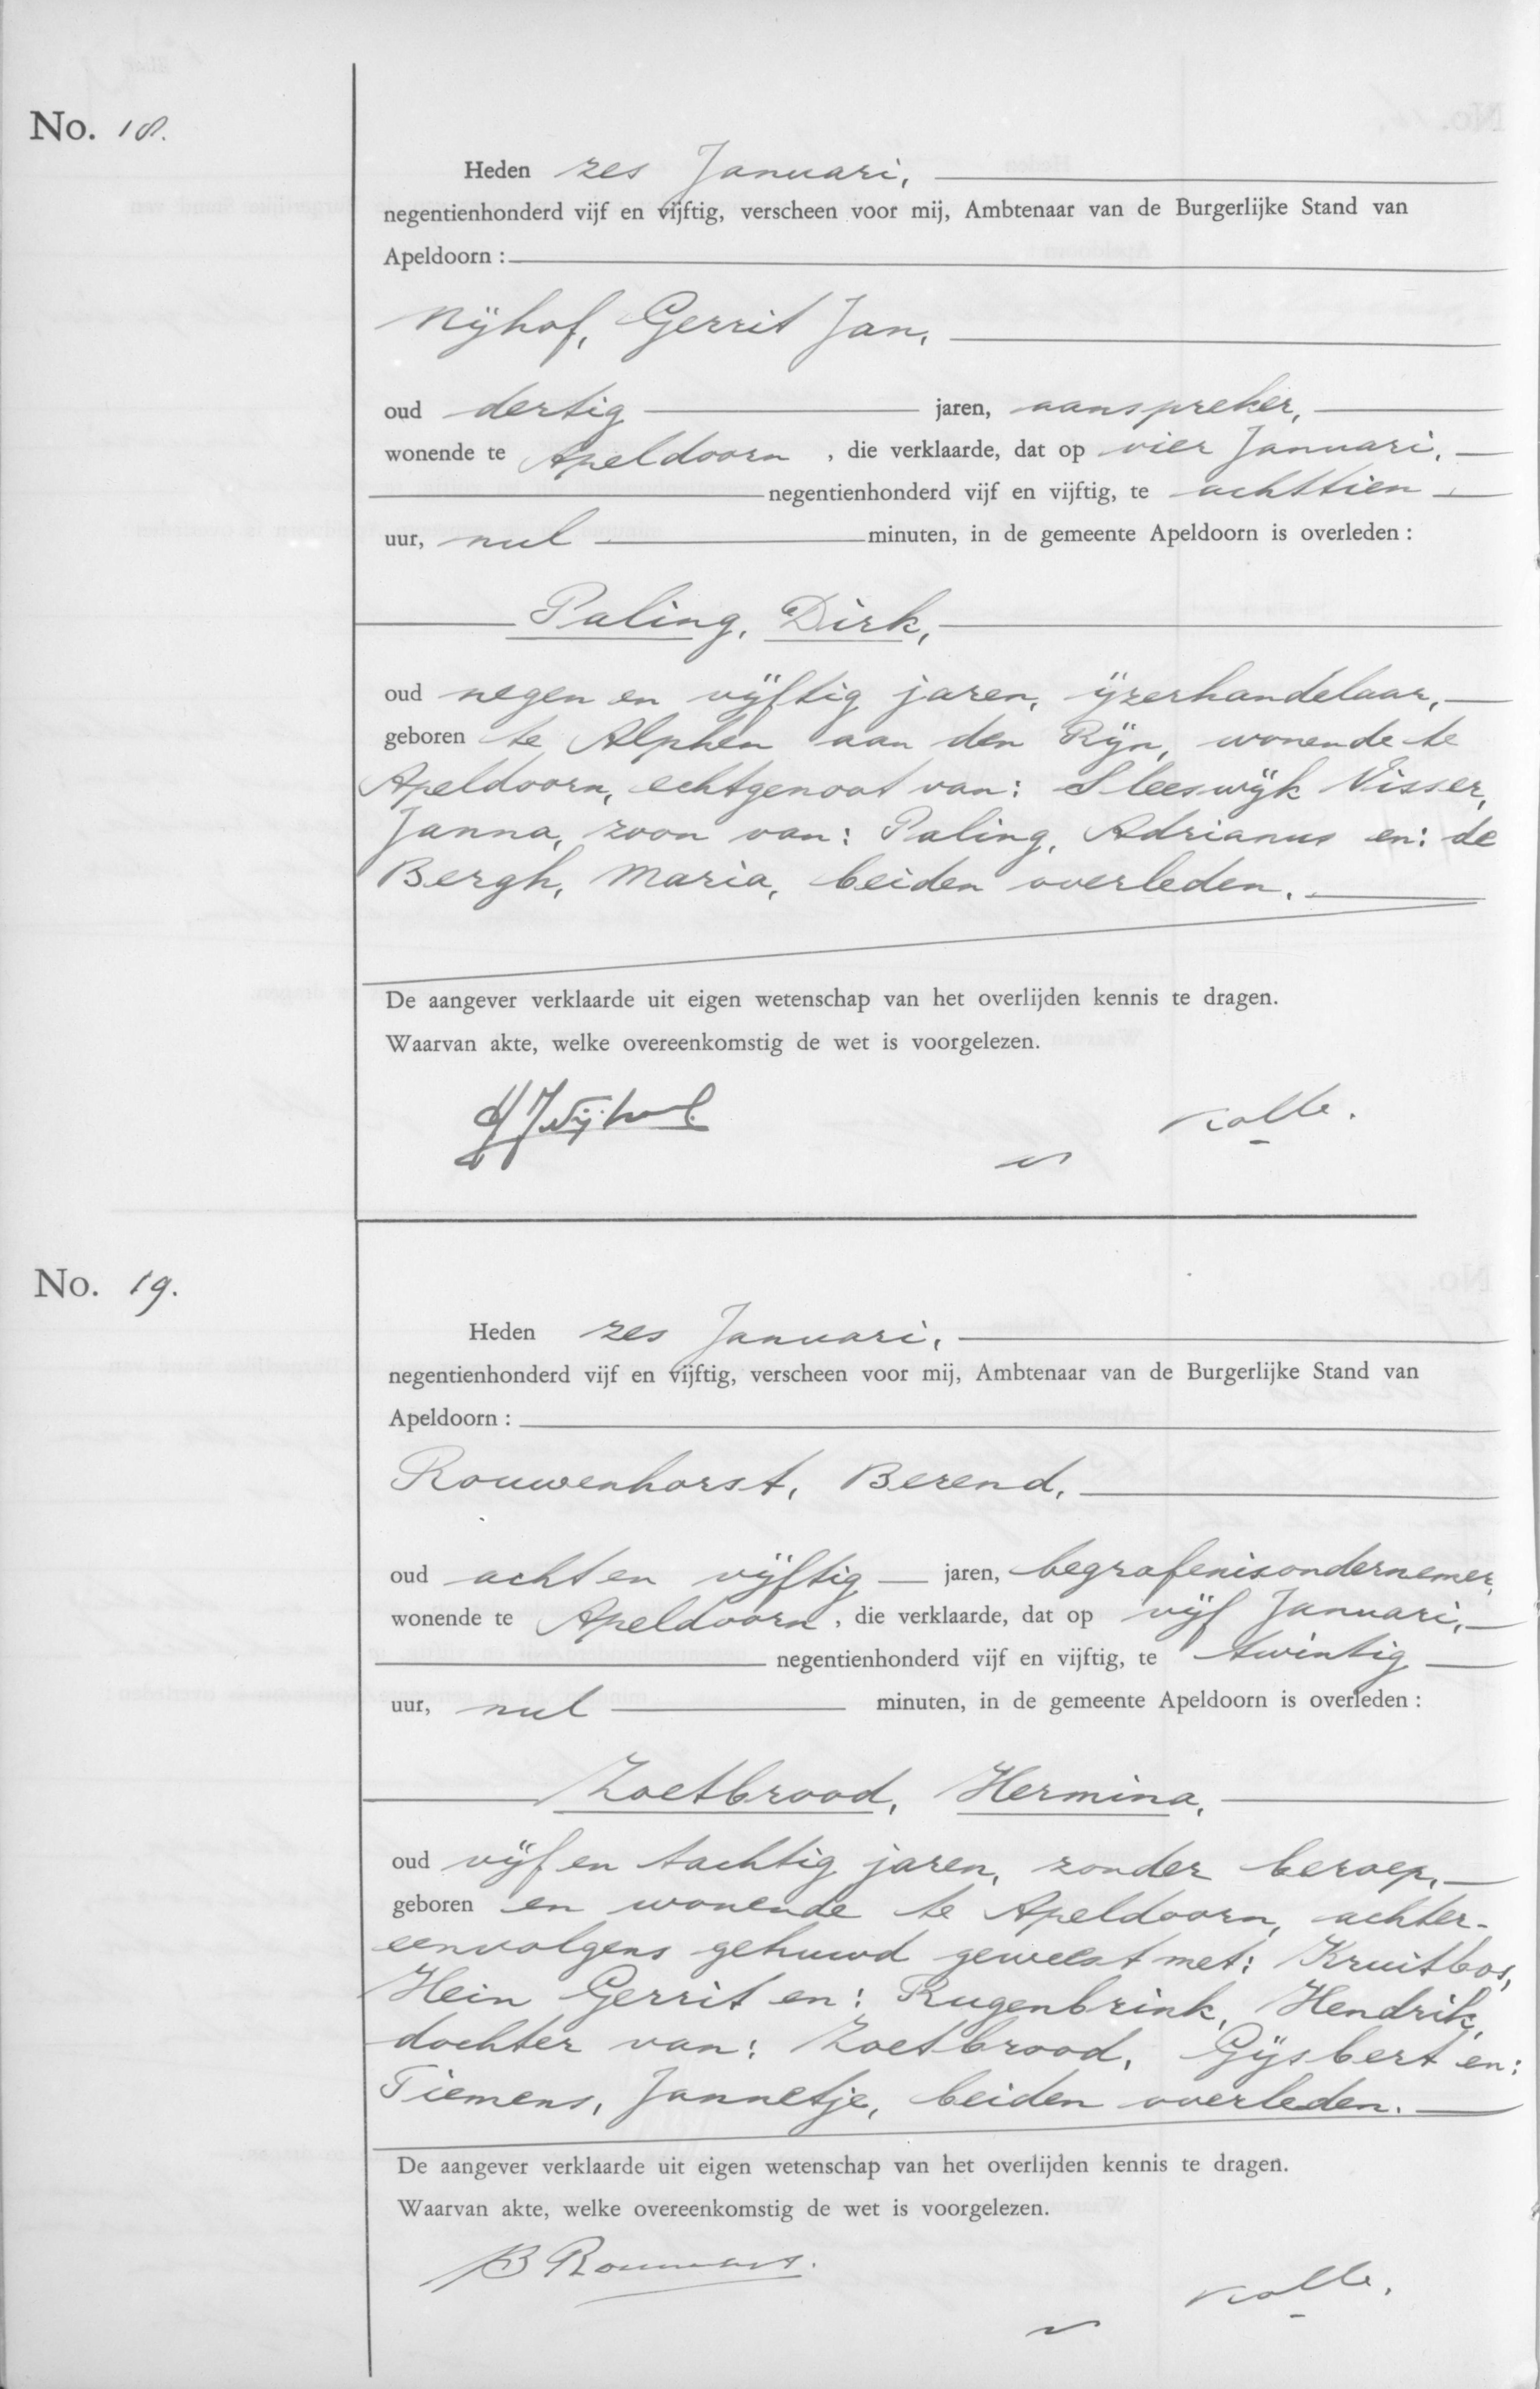 No. 18.
Heden zes Januari,
negentienhonderd vijf en vijftig, verscheen voor mij, Ambtenaar van de Burgerlijke Stand van
Apeldoorn :
Nijhof, Gerrit Jan,
oud dertig jaren, aanspreker,
wonende te Apeldoorn , die verklaarde, dat op vier Januari,
negentienhonderd vijf en vijftig, te achttien
uur, nul minuten, in de gemeente Apeldoorn is overleden :
Paling, Dirk,
oud negen en vijftig jaren, ijzerhandelaar,
geboren te Alphen aan den Rijn, wonende te
Apeldoorn, echtgenoot van: Sleeswijk Visser,
Janna, zoon van: Paling, Adrianus en: de
Bergh, Maria, beiden overleden.
De aangever verklaarde uit eigen wetenschap van het overlijden kennis te dragen.
Waarvan akte, welke overeenkomstig de wet is voorgelezen.
GJ Nijhof
No. 19.
Heden zes Januari,
negentienhonderd vijf en vijftig, verscheen voor mij, Ambtenaar van de Burgerlijke Stand van
Apeldoorn :
Rouwenhorst, Berend,
oud acht en vijftig jaren, begrafenisondernemer,
wonende te Apeldoorn , die verklaarde, dat op vijf Januari,
negentienhonderd vijf en vijftig, te twintig
uur, nul minuten, in de gemeente Apeldoorn is overleden :
Zoetbrood, Hermina,
oud vijf en tachtig jaren, zonder beroep,
geboren en wonende te Apeldoorn, achter-
eenvolgens gehuwd geweest met: Kruitbos,
Hein Gerrit en: Rugenbrink, Hendrik,
dochter van: Zoetbrood, Gijsbert en:
Tiemens, Jannetje, beiden overleden.
De aangever verklaarde uit eigen wetenschap van het overlijden kennis te dragen.
Waarvan akte, welke overeenkomstig de wet is voorgelezen.